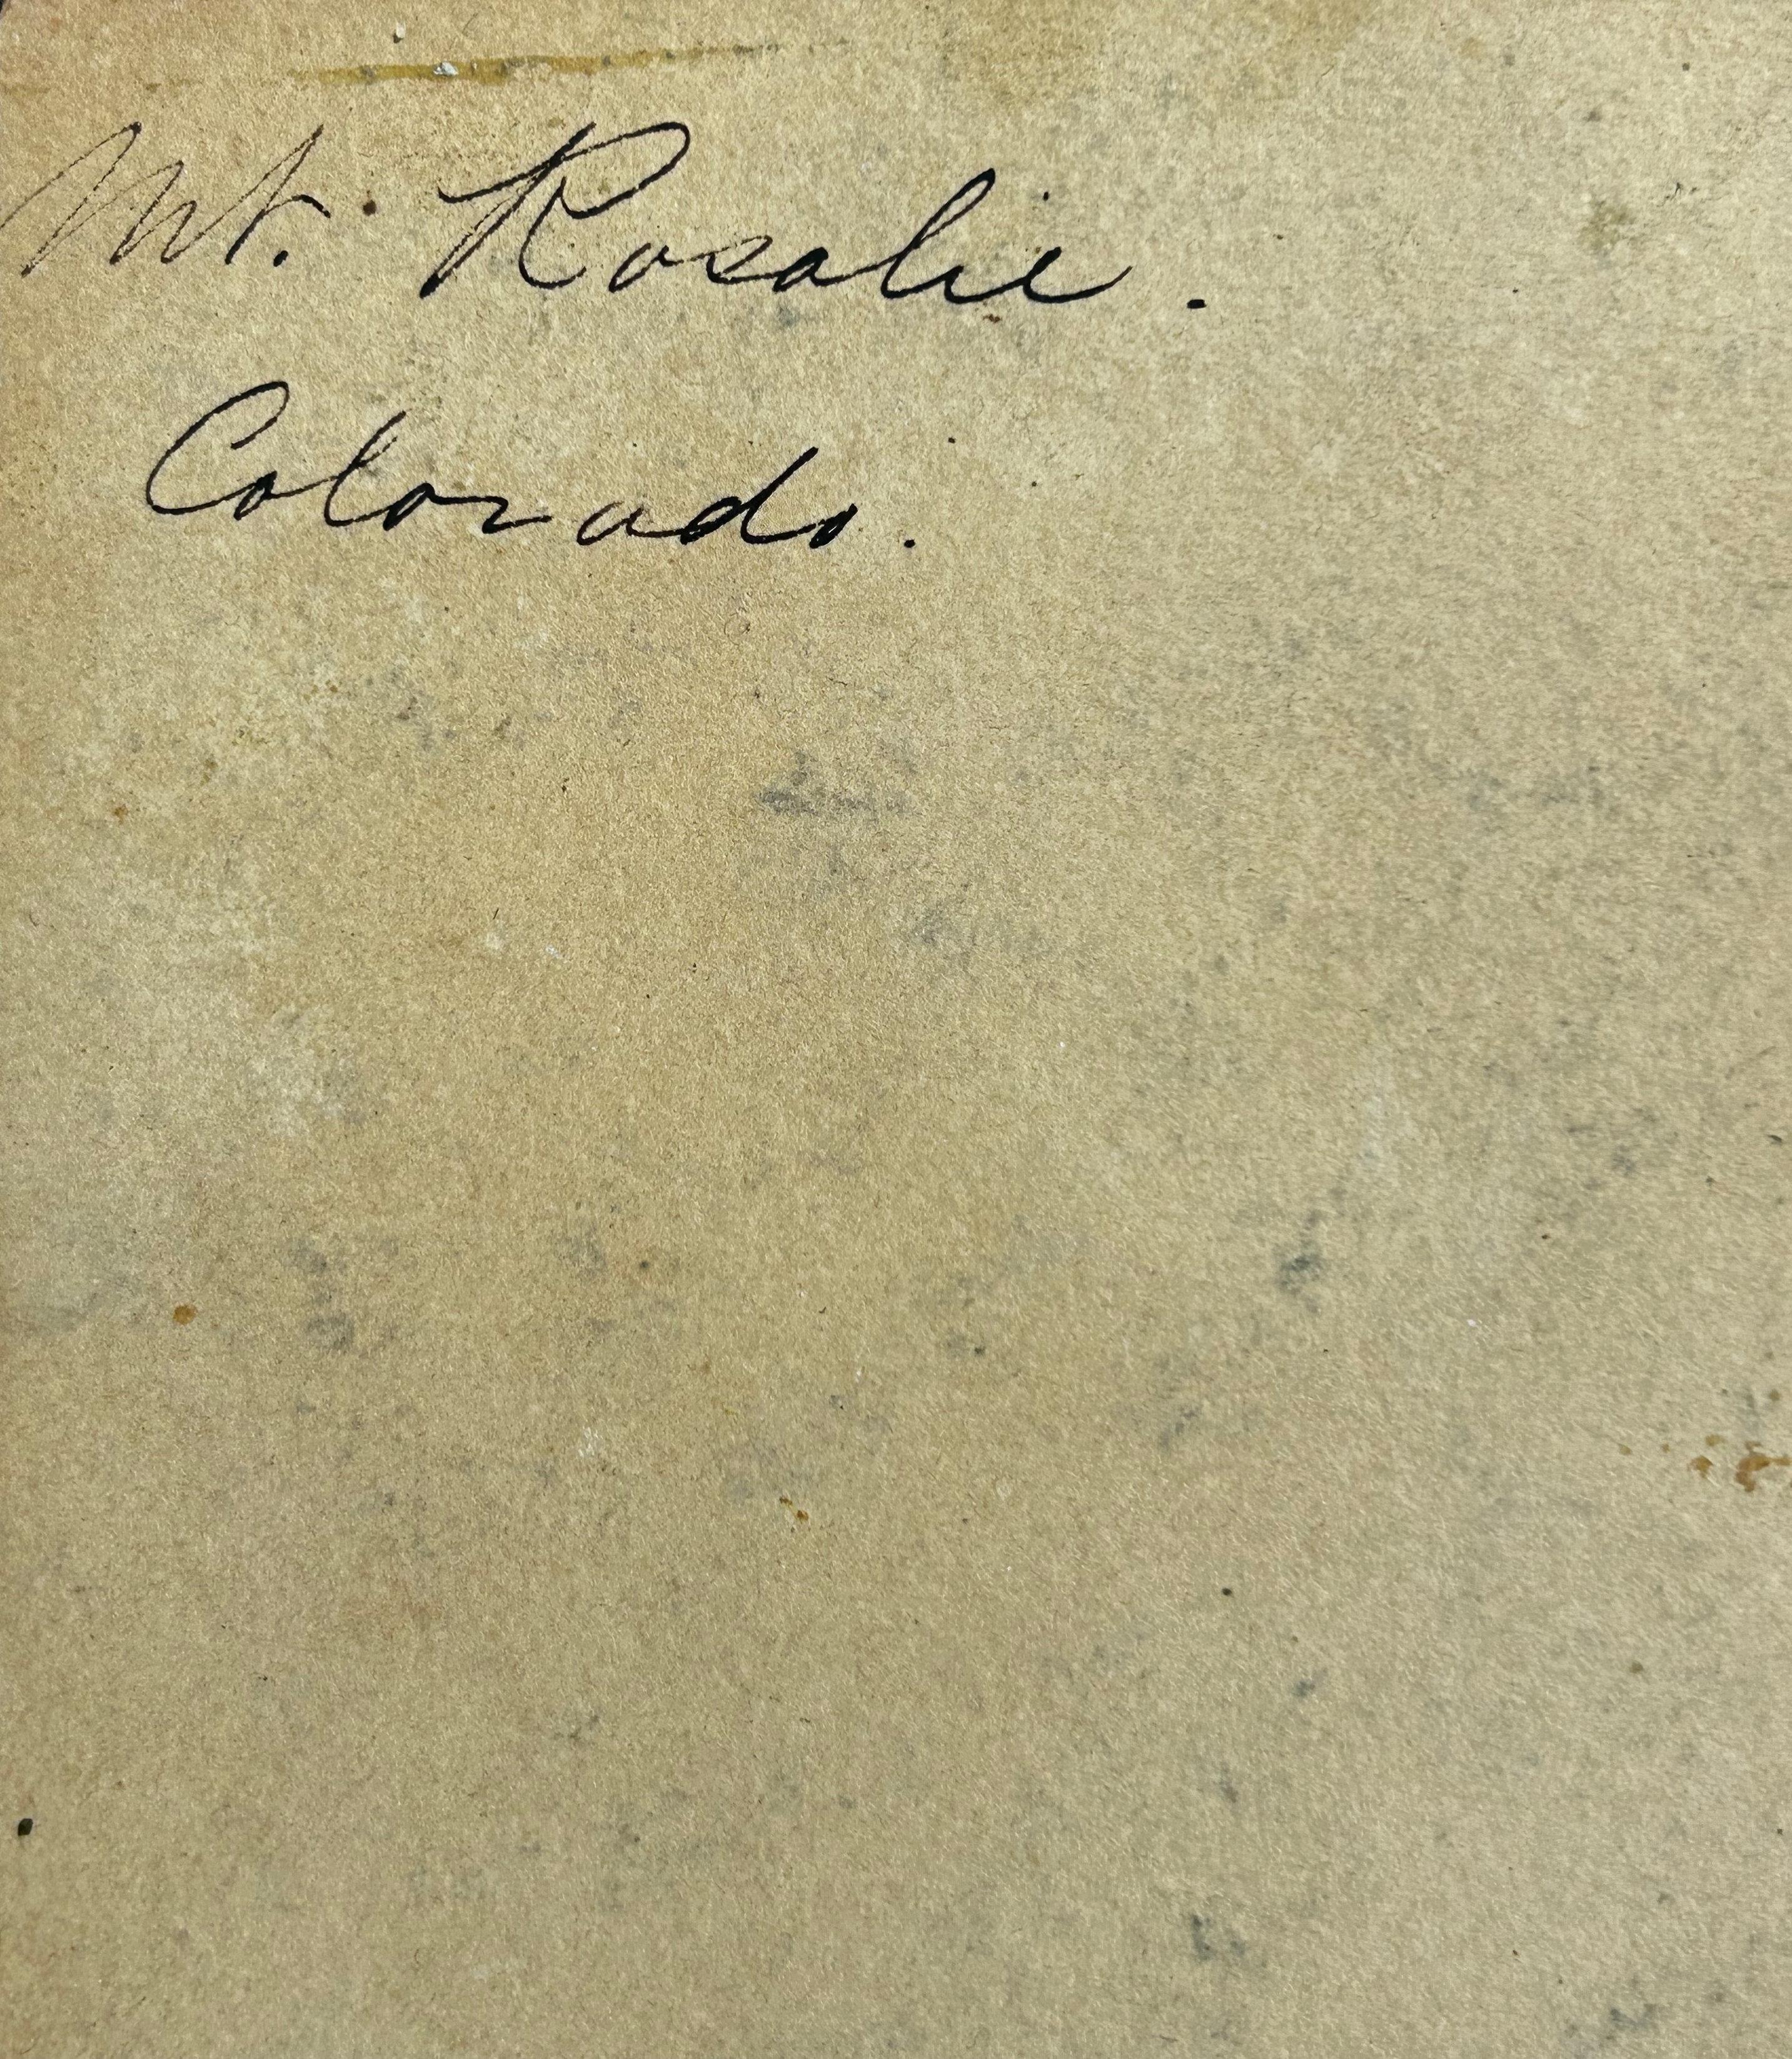 Mt. Rosalie.
Colorado.